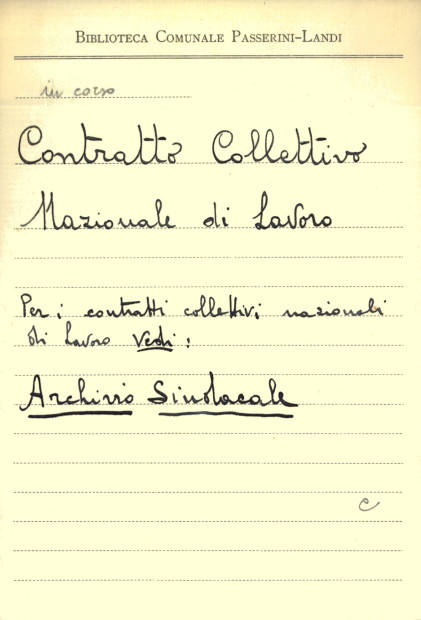 BIBLIOTECA COMUNALE PASSERINI-LANDI
in corso
Contratto Collettivo
Nazionale di Lavoro
Per i contratti collettivi nazionali
di Lavoro Vedi:
Archivio Sindacale
c